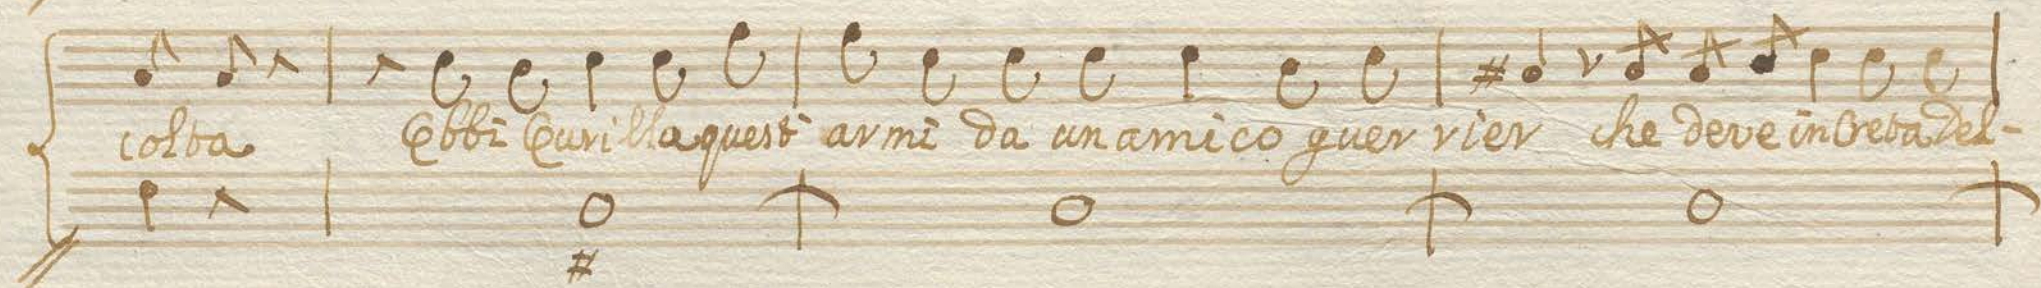 colta Ebbi Eurilla quest' armi da un amico guerrier che deve in Creta Del-